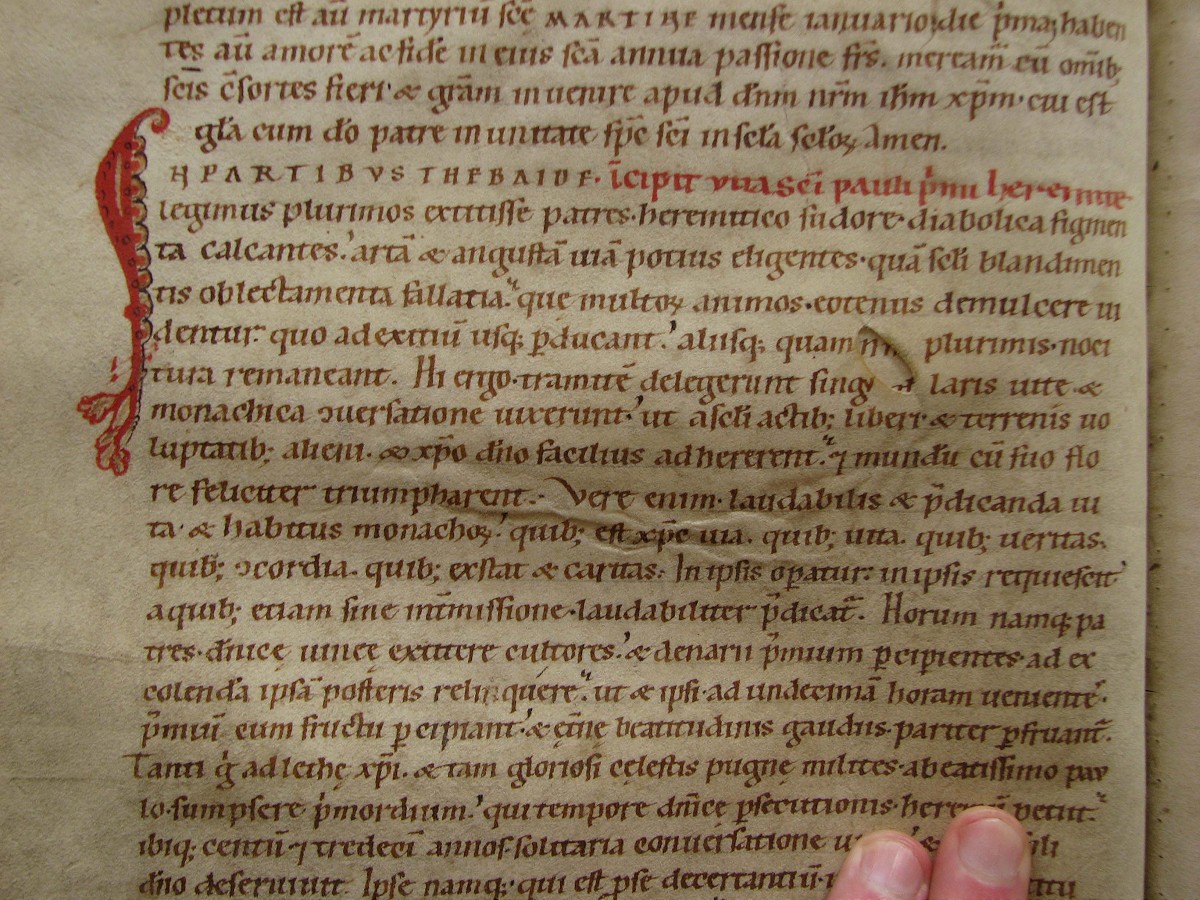 pletum est aũ martyriũ scẽ MARTINE mense ianuario, die p̃ma, haben
tes aũ amorẽ ac fidẽ in eius scã annua passione frs̃. meream̃ cũ om̃ib;
scĩs c̃sortes fieri & gr̃am inuenire apud dñm nr̃m ihm̃ xp̃m· cui est
gl̃a cum dõ patre in unitate sp̃c sc̃i in scl̃a scl̃oꝝ Amen.
IN PARTIBVS THEBAIDE· ĩcipit uita sc̃i pauli p̃mi heremite
legimus plurimos extitisse patres· heremitico sudore· diabolica figmen
ta calcantes.' artã & angustã uiã potius eligentes· quã scl̃i blandimen
tis oblectamenta fallatia. que multoꝝ animos· eotenus demulcere ui
dentur· quo ad exitiũ usq; ꝑducant.' aliisq; quam plurimis· noci
tura remaneant. Hi ergo· tramitẽ delegerunt singu laris uite &
monachica ɔuersatione uixerunt·' ut a scl̃i actib; liberi & terrenis uo
luptatib; alieni. & xp̃o dñ̃o facilius adhererent. ⁊ mundũ cũ suo flo
re feliciter triumpharent.· Vere enim· laudabilis & p̃dicanda ui
ta· & habitus monachoꝝ.' quib; est xp̃c uia. quib; uita. quib; ueritas.
quib; ɔcordia. quib; exstat & caritas: In ipsis oꝑatur: in ipsis requiescit·
a quib; etiam sine int̃missione· laudabiliter p̃dicat̃. Horum namq; pa
tres· dñice uinee extitere cultores.' & denarii p̃mium ꝑcipientes· ad ex
colendã ipsã posteris relinquere. ut & ipsi· ad undecimã horam uenientẽ·
p̃miũ cum fructu ꝑcipiant.' & et̃ne beatitudinis gaudiis· pariter ꝑfruant̃.
Tanti g̊ adlethę xp̃i. & tam gloriosi cęlestis pugnę milites· a beatissimo pau
lo· sumpsere p̃mordium.' qui tempore dñice ꝑsecutionis· petiit.
ibiq; centũ ⁊ tredecĩ annos· solitaria conuersatione
dñ̃o deseruiuit. Ipse namq; qui est ꝑse decertantiũ·